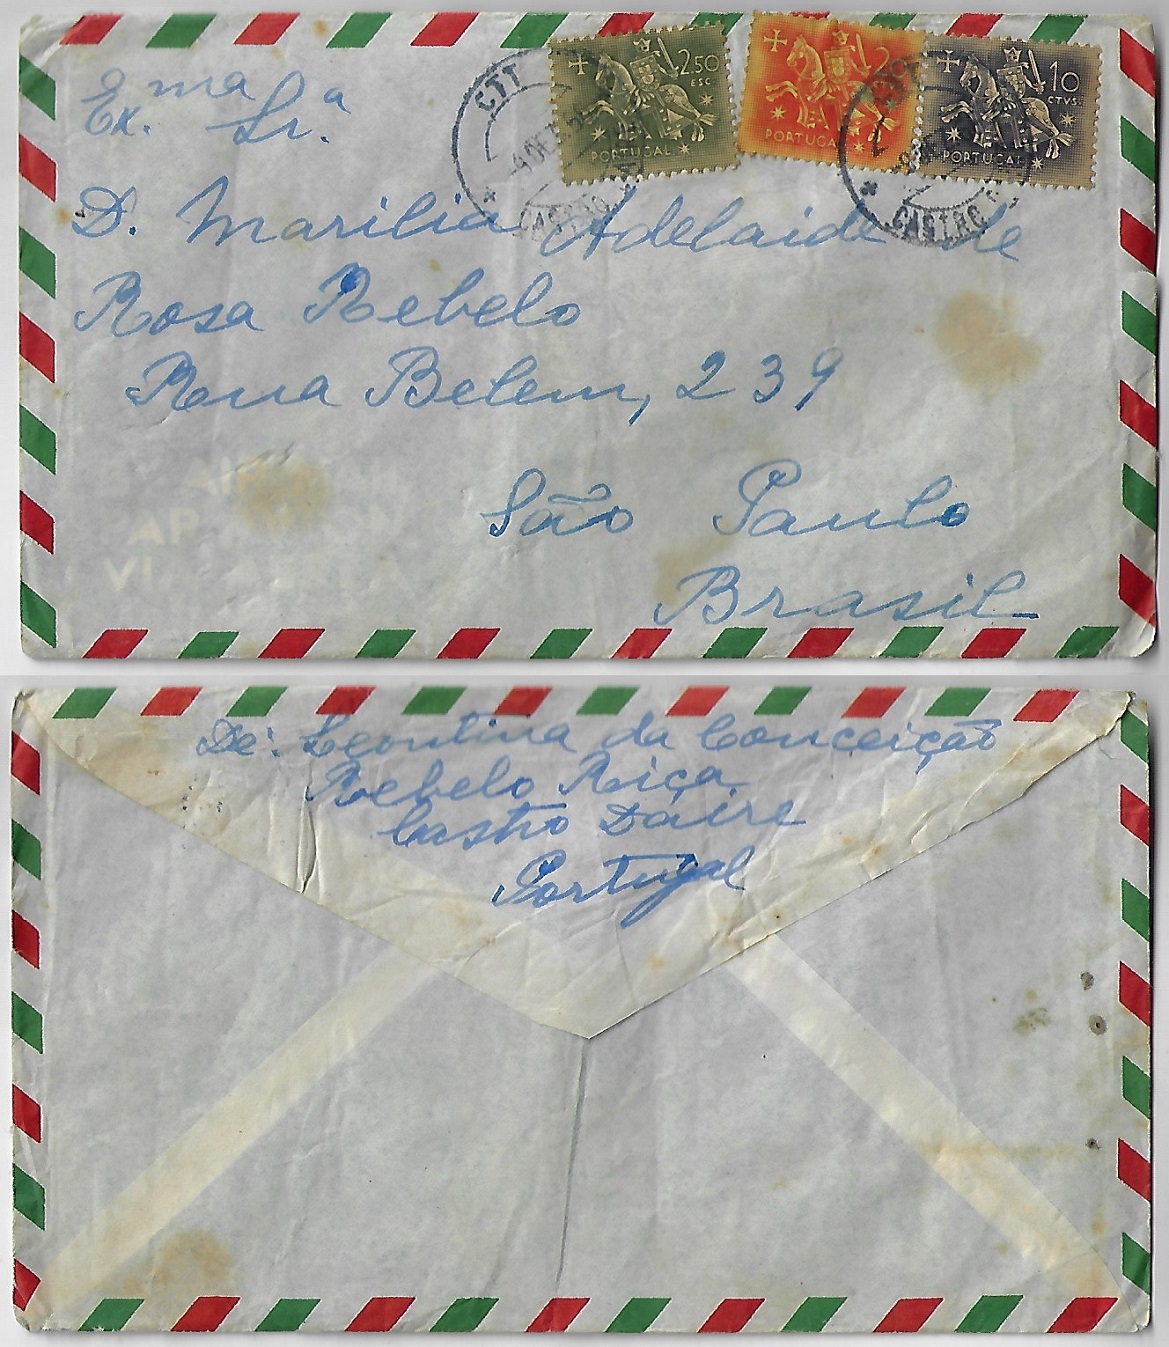 Ex.ma Sr.a
D. Marilia Adelaide de
Rosa Rebelo
Rua Belem, 239
São Paulo
Brasil
2$50
ESC
PORTUGAL
20
PORTUGAL
10
CTVS.
PORTUGAL
CTT
CASTRO
CASTRO
De: Leontina da Conceição
Rebelo Riça
Castro Dáire
Portugal